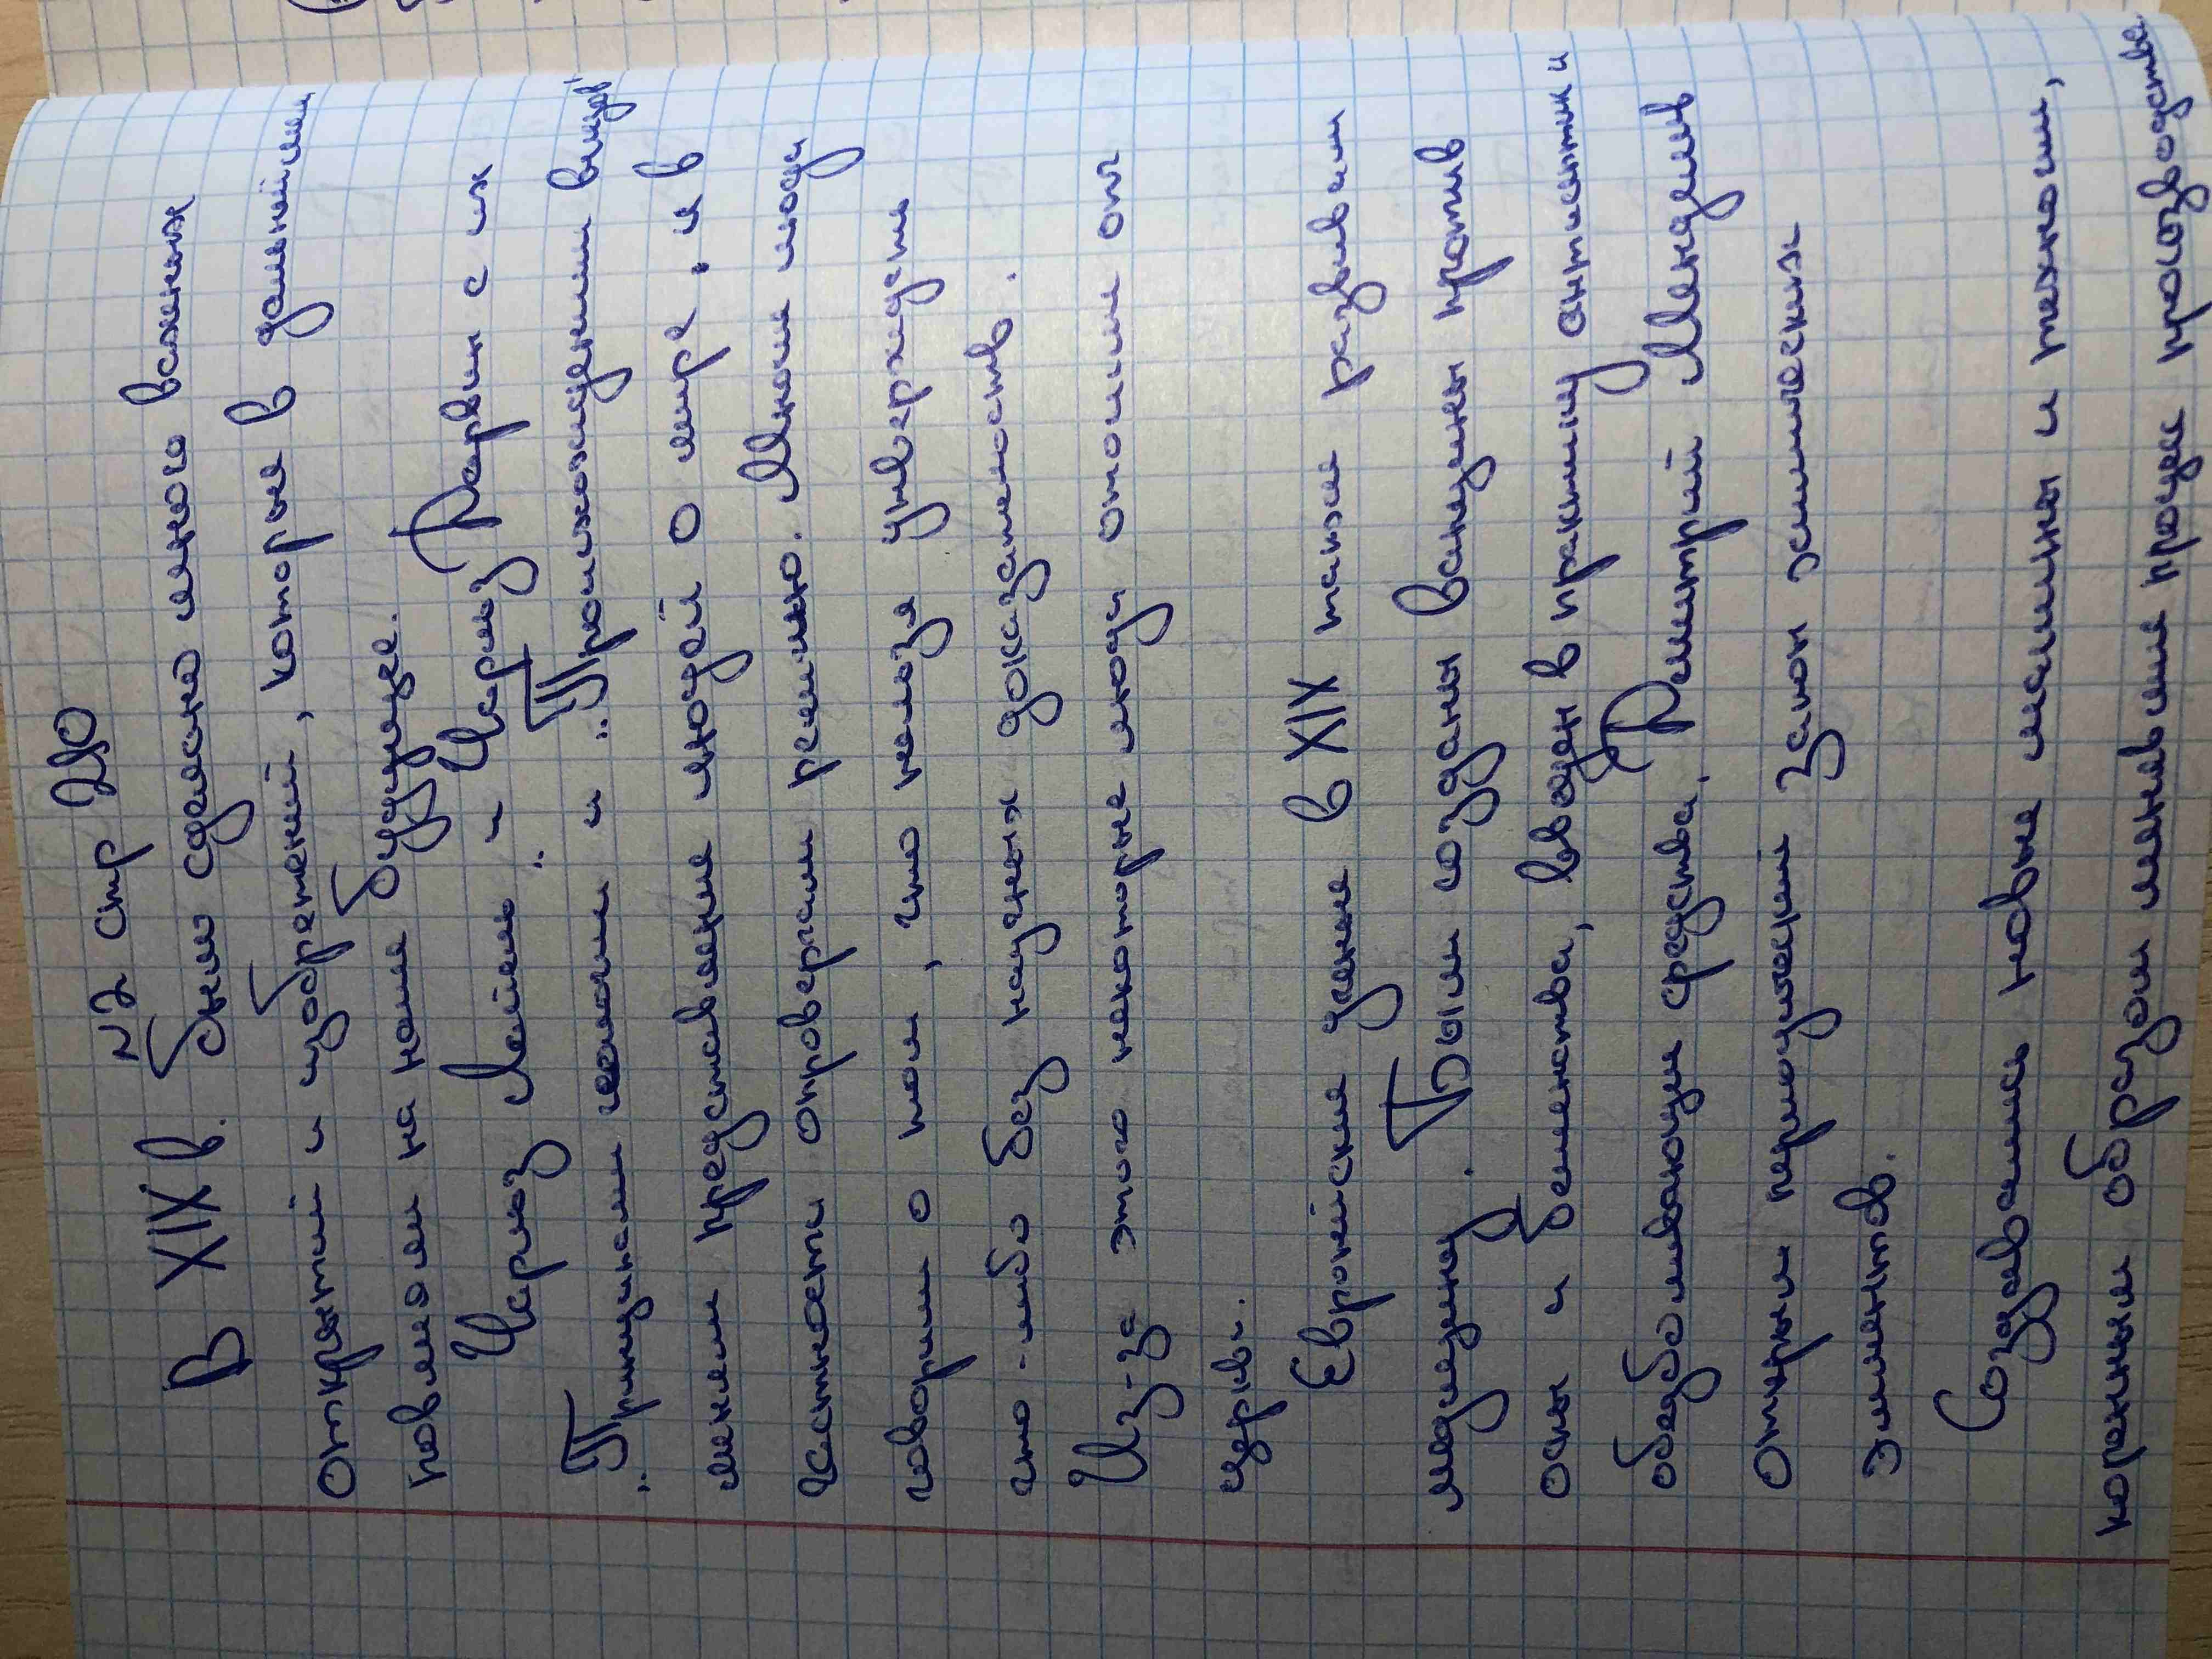 №2 стр 210
В XIX в. было сделано много важных
открытий и изобретений, которые в дальнейшем
повлияли на наше будущее.
Чарлз Лайель и Чарлз Дарвин с их
„Принципами геологии" и „Происхождением видов"
меняли представление людей о мире, и в
частности опровергали религию. Многие люди
говорили о том, что нельзя утверждать
что-либо без научных доказательств.
Из-за этого некоторые люди отошли от
церкви.
Европейские учёные в XIX также развивали
медицину. Были созданы вакцины против
оспы и бешенства, введен в практику антисептик и
обезболивающие средства. Дмитрий Менделеев
открыл периодический закон химических
элементов.
Создавались новые машины и технологии,
коренным образом менявшие процесс производства